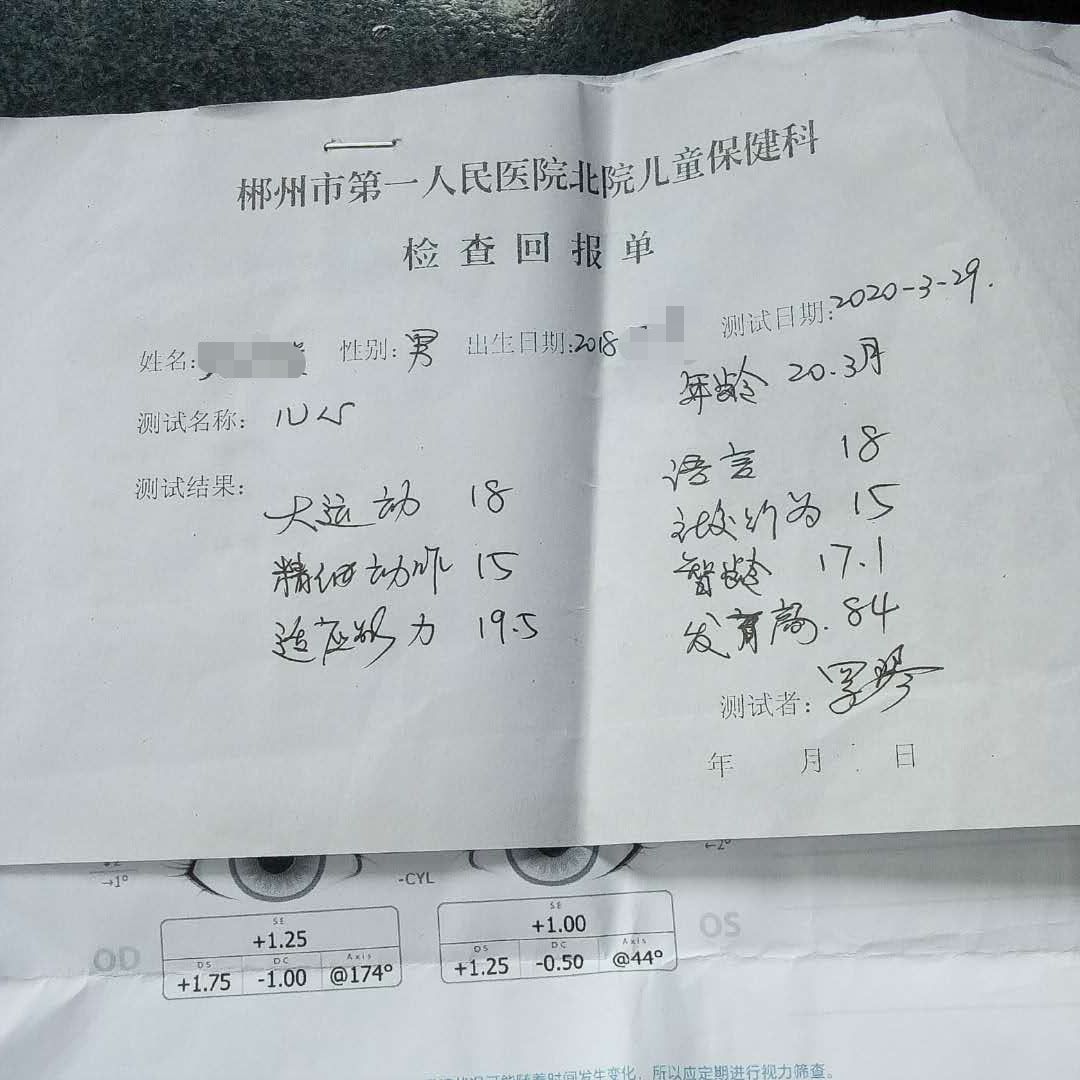 郴州市第一人民医院北院儿童保健科
检查回报单
姓名: 性别:男 出生日期:2018 测试日期:2020-3-29.
年龄 20.3月
测试名称: 儿心
测试结果:
大运动 18 语言 18
精细动作 15 社交行为 15
适应能力 19.5 智龄 17.1
发育商.84
测试者:
年 月 日
→1° -CYL ←2°
OD OS
SE SE
+1.25 +1.00
DS DC Axis DS DC Axis
+1.75 -1.00 @174° +1.25 -0.50 @44°
可能随着时间发生变化，所以应定期进行视力筛查。